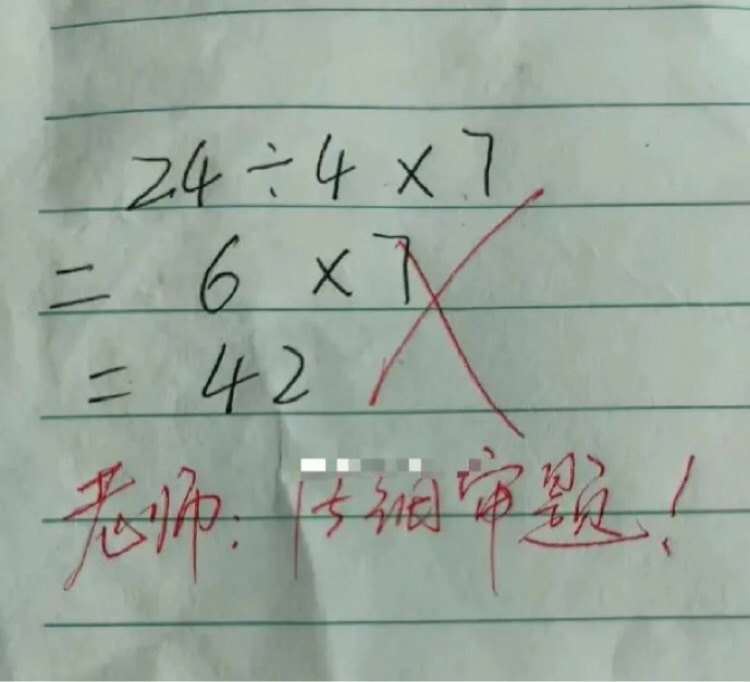 24÷4×7
= 6 ×7
= 42
老师:仔细审题!